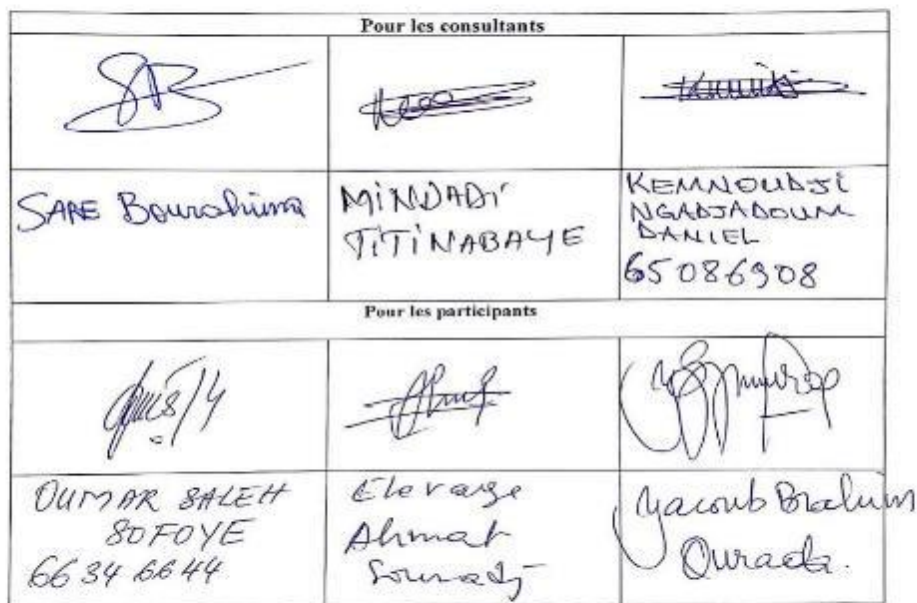 Pour les consultants
SARE Bourahima
MINDADI
TITINABAYE
KEMNOUDJI
NGADJADOUM
DANIEL
65086908
Pour les participants
OUMAR SALEH
SOFOYE
66 34 66 44
Elevage
Ahmat
Yacoub Brahim